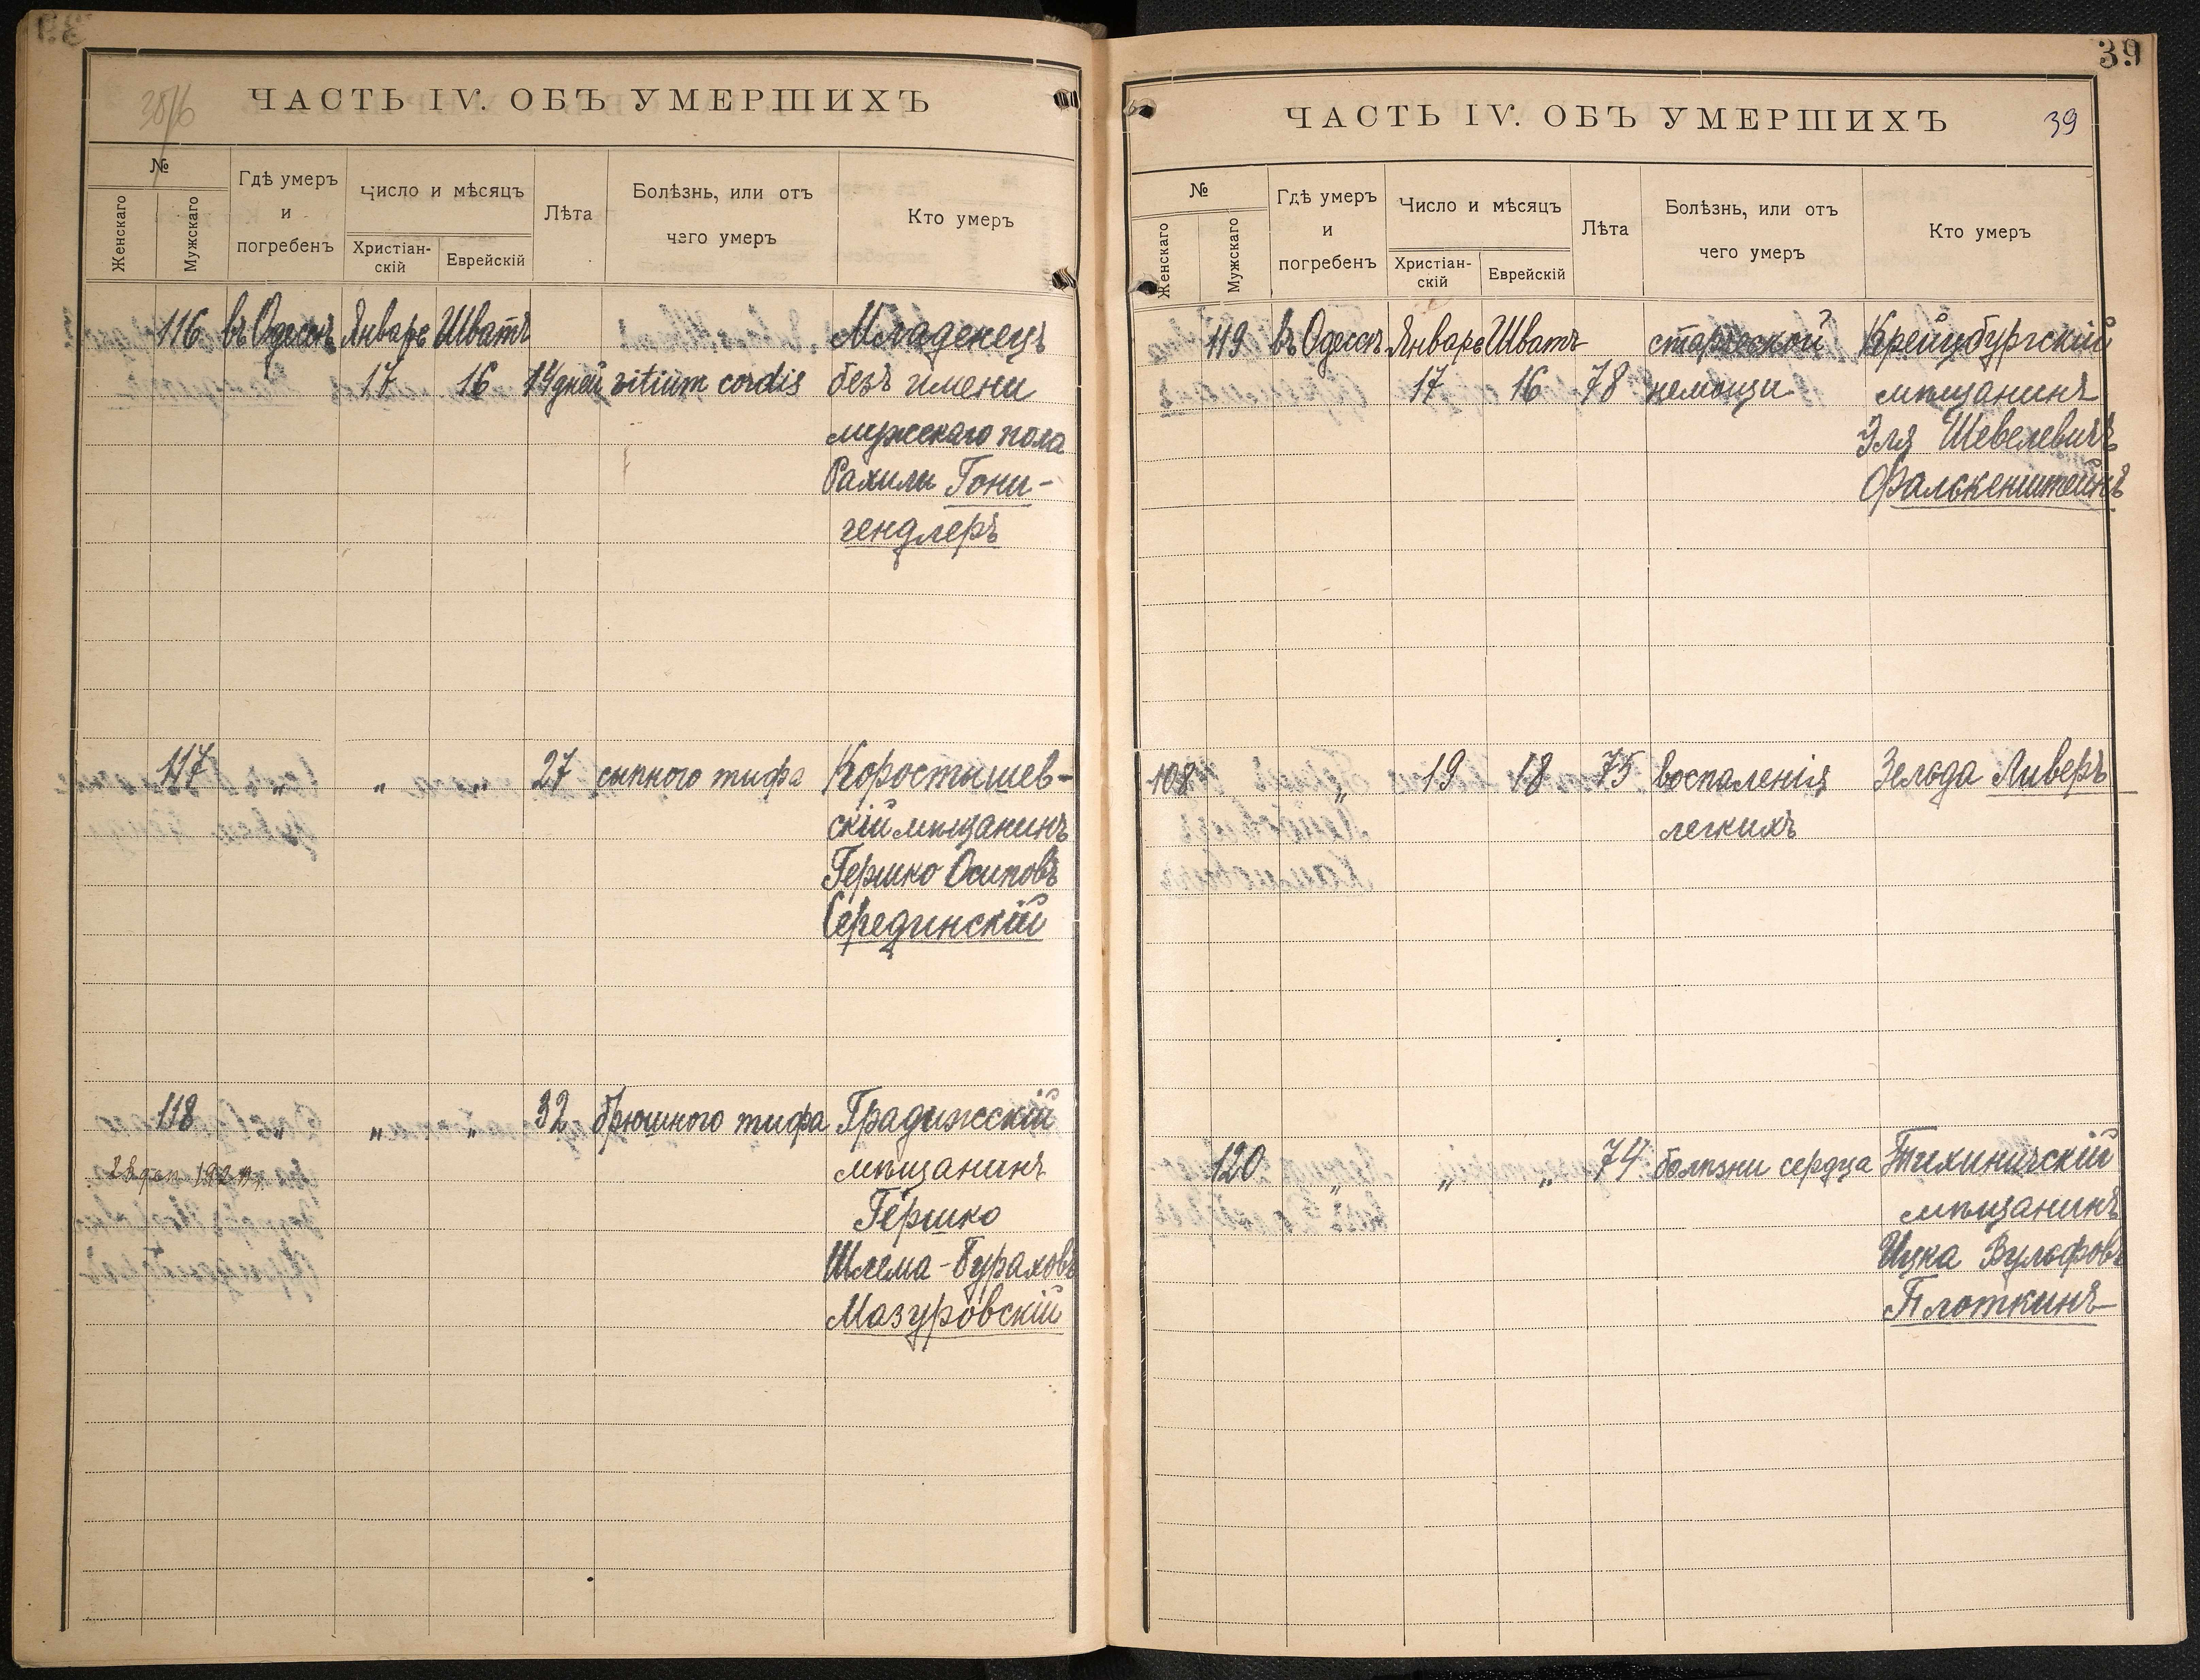 ЧАСТЬ IV. ОБЪ УМЕРШИХЪ
№
Женскаго
Мужскаго
Гдѣ умеръ
и
погребенъ
Число и мѣсяцъ
Христіан-
скій
Еврейскій
Лѣта
Болѣзнь, или отъ
чего умеръ
Кто умеръ
116 въ Одессѣ Январь Шватъ Младенецъ
17 16 14 дней vitium cordis безъ имени
мужского пола
Рахили Гони-
гендлеръ
117 „ „ „ 27 сыпного тифа Коростышев-
скій мѣщанинъ
Гершко Осиповъ
Серединскій
118 „ „ „ 32 брюшного тифа Градижсскій
мѣщанинъ
Гершко
Шлема-Бураховъ
Мазуровскій
39
ЧАСТЬ IV. ОБЪ УМЕРШИХЪ 39
№
Женскаго
Мужскаго
Гдѣ умеръ
и
погребенъ
Число и мѣсяцъ
Христіан-
скій
Еврейскій
Лѣта
Болѣзнь, или отъ
чего умеръ
Кто умеръ
119 въ Одессѣ Январь Шватъ старческой Крейцбургскій
17 16 78 немощи мѣщанинъ
Эля Шевелевичъ
Фалькенштейнъ
108 „ 19 18 75 воспаленія Зельда Ливеръ
легкихъ
120 „ „ „ 74 болѣзни сердца Тихиничскій
мѣщанинъ
Ицка Вульфовъ
Плоткинъ